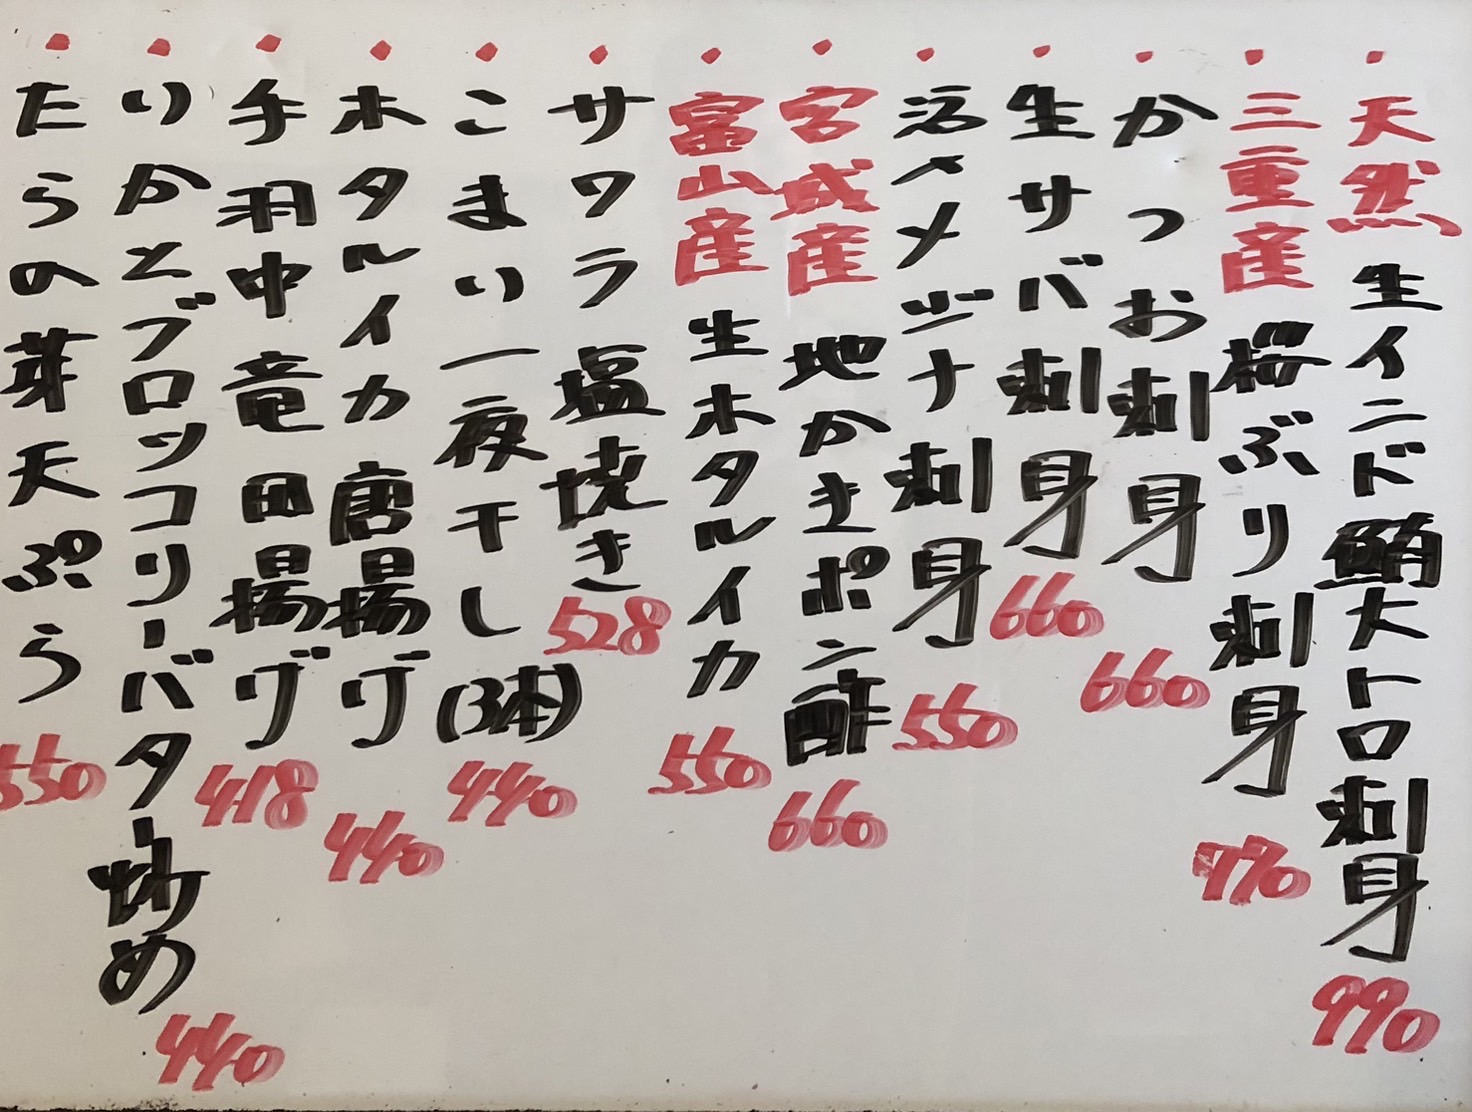 ・天然 生インド鮪大トロ刺身 990
・三重産 桜ぶり刺身 770
・かつお刺身 660
・生サバ刺身 660
・活〆メジナ刺身 550
・宮城産 地かきポン酢 660
・富山産 生ホタルイカ 550
・サワラ塩焼き 528
・こまい一夜干し(3本) 440
・ホタルイカ唐揚げ 440
・手羽中竜田揚げ 418
・いかとブロッコリーバター炒め 440
・たらの芽天ぷら 550